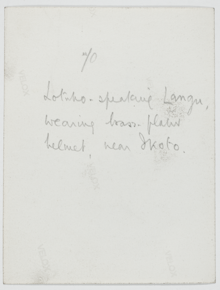 Lotuho-speaking Langu,
wearing brass-plated
helmet, near Ikoto.